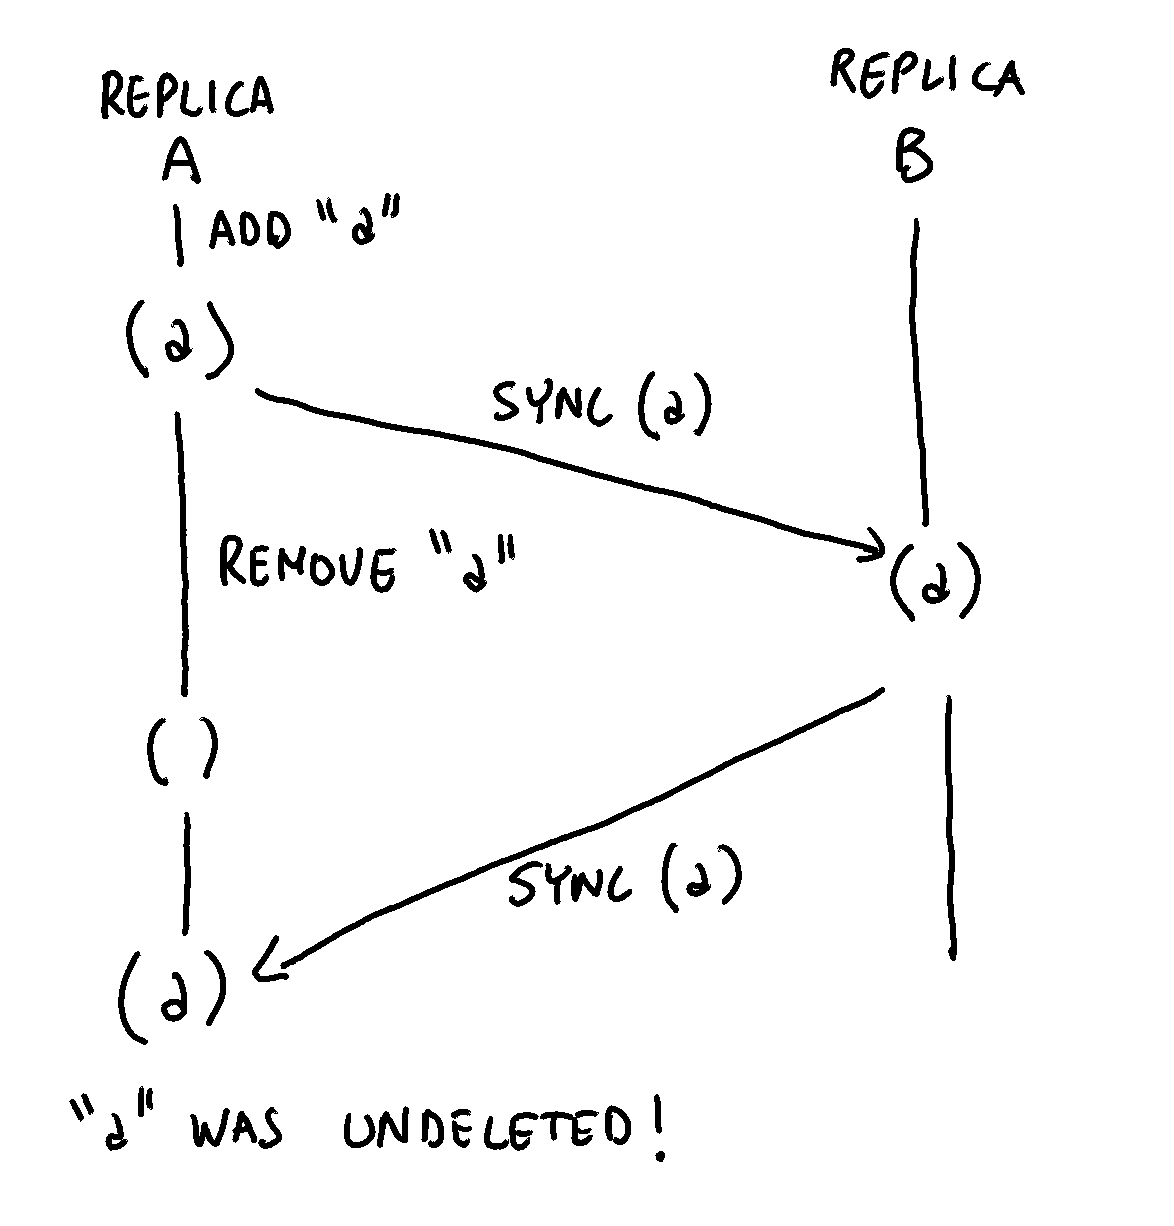 REPLICA
A
REPLICA
B
ADD "a"
(a)
SYNC (a)
REMOVE "a"
(a)
( )
SYNC (a)
(a)
"a" WAS UNDELETED!